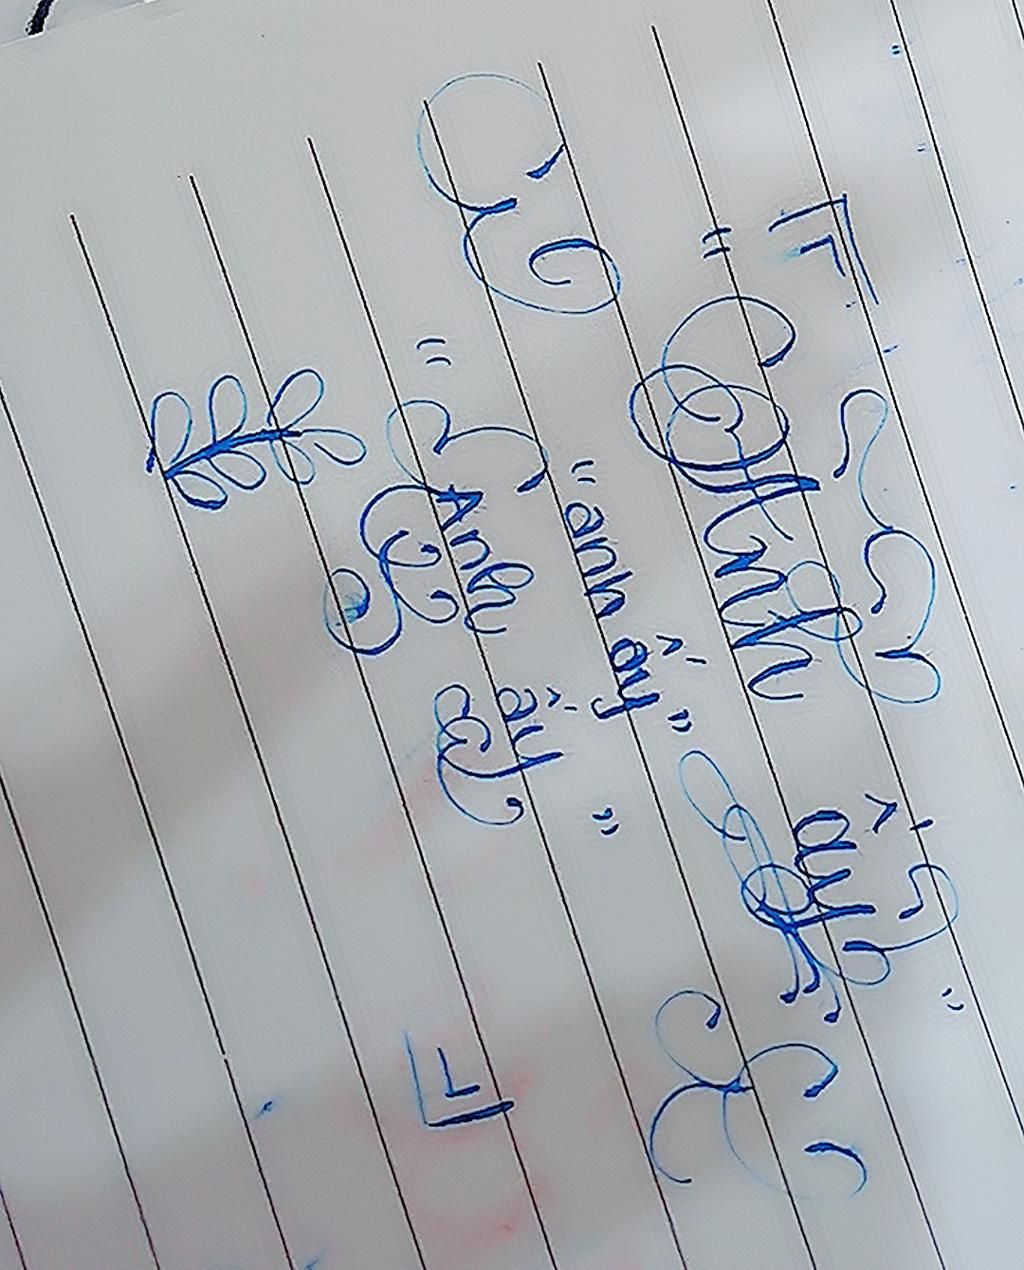 "Anh ấy"
"anh ấy"
"Anh ấy"